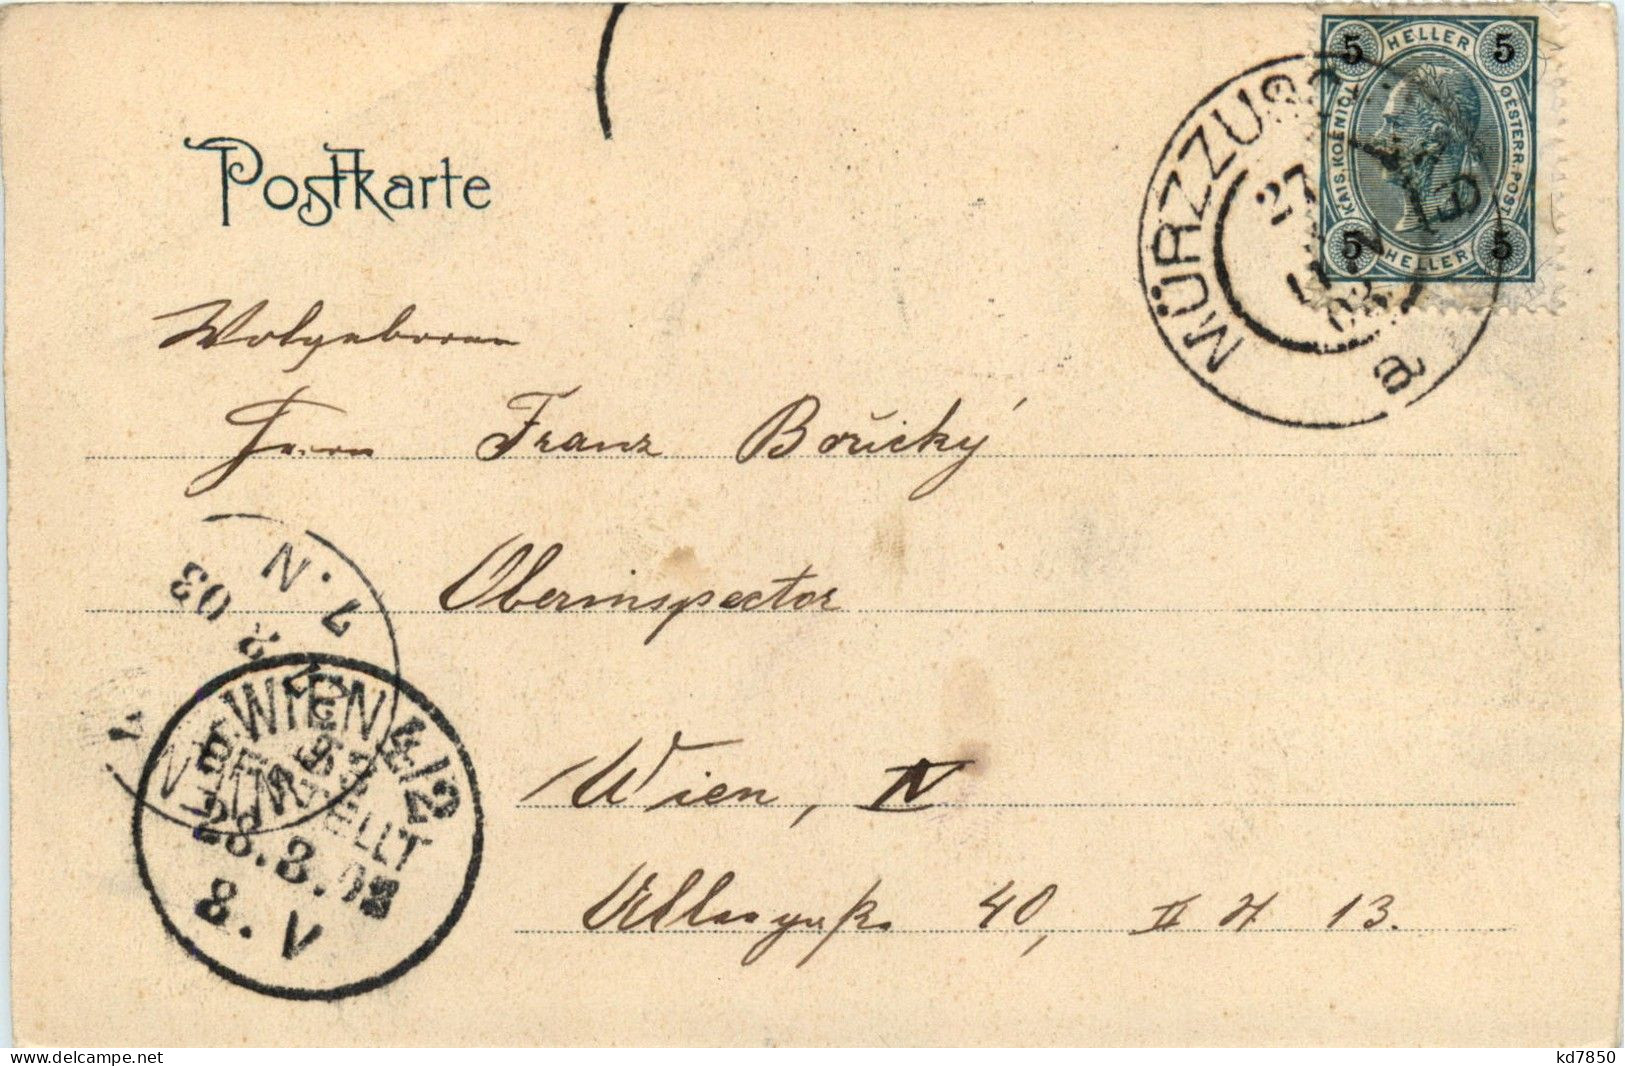 Postkarte
5 HELLER 5
KAIS. KOENIGL. OESTERR. POST
5 HELLER 5
MÜRZZUSCHLAG
27
03
Wolgeboren
Herrn Franz Bořický
Oberinspector
Wien, IV
7. N
2 03
WIEN 4/2
BESTELLT
28. 3. 03
8. V
WIEN
40, II 13.
delcampe.net
kd7850